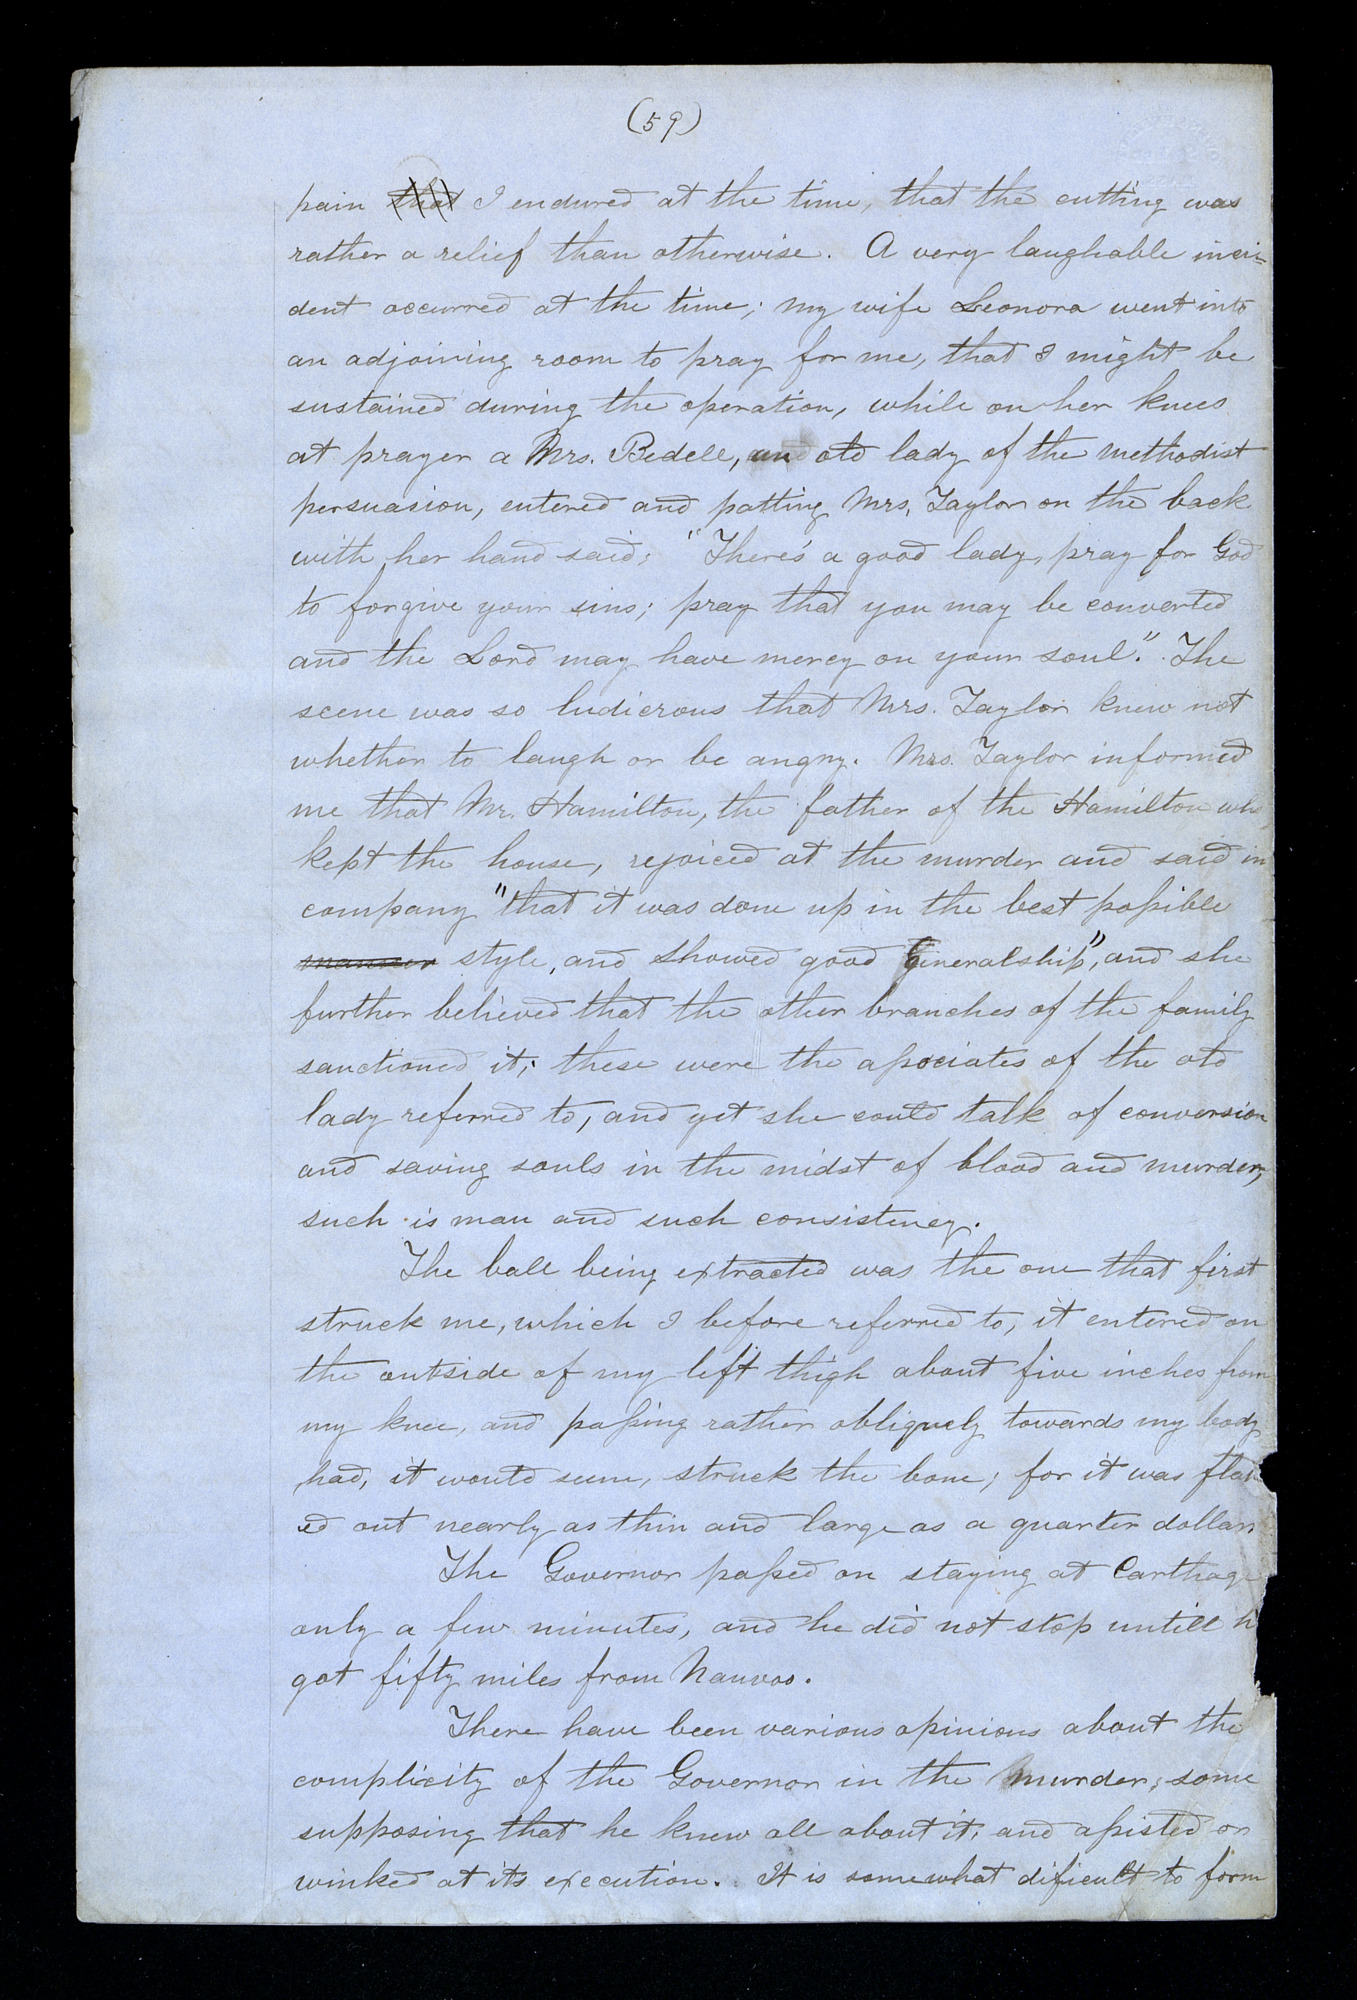 (59)
pain that I endured at the time, that the cutting was
rather a relief than otherwise. A very laughable inci=
dent occurred at the time; my wife Leonora went into
an adjoining room to pray for me, that I might be
sustained during the operation, while on her knees
at prayer a Mrs. Bedell, an old lady of the methodist
persuasion, entered and patting Mrs, Taylor on the back
with her hand said; "There's a good lady, pray for God
to forgive your sins; pray that you may be converted
and the Lord may have mercy on your soul." The
scene was so ludicrous that Mrs. Taylor knew not
whether to laugh or be angry. Mrs. Taylor informed
me that Mr. Hamilton, the father of the Hamilton who
kept the house, rejoiced at the murder and said in
company "that it was done up in the best possible
manner style, and showed good Generalship", and she
further believed that the other branches of the family
sanctioned it; these were the associates of the old
lady referred to, and yet she could talk of conversion
and saving souls in the midst of blood and murder;
such is man and such consistency.
The ball being extracted was the one that first
struck me, which I before referred to, it entered on
the outside of my left thigh about five inches from
my knee, and passing rather obliquely towards my body
had, it would seem, struck the bone; for it was flat
ed out nearly as thin and large as a quarter dollar.
The Governor passed on staying at Carthage
only a few minutes, and he did not stop untill h
got fifty miles from Nauvoo.
There have been various opinions about the
complicity of the Governor in the murder; some
supposing that he knew all about it, and assisted or
winked at its execution. It is somewhat dificult to form